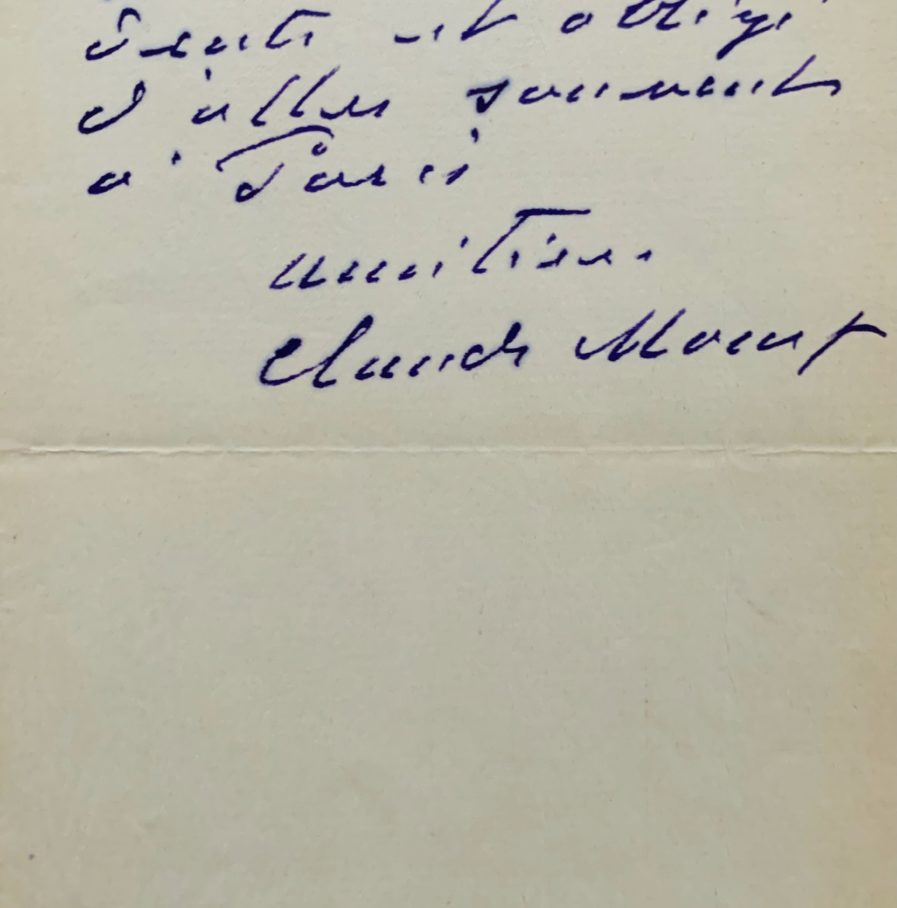 santé et obligé
d'aller souvent
à Paris
amitiés.
Claude Monet